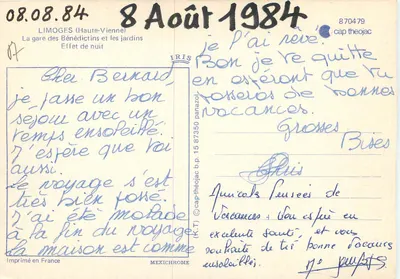 08.08.84
8 Août 1984
870479
cap théojac
LIMOGES (Haute-Vienne)
La gare des Bénédictins et les jardins
Effet de nuit
07
IRIS
Cher Bernard,
je passe un bon
séjour avec un
temps ensoleillé.
J'espère que toi
aussi.
Le voyage s'est
très bien passé.
J'ai été malade
à la fin du voyage
la maison est comme
je l'ai rêvé.
Bon je te quitte
en espérant que tu
passeras de bonnes
vacances.
Grosses
Bises
Amicales Pensées de
Vacances.
excellente santé, et vous
souhaite de très bonne Vacances
ensoleillées.
cap theojac b.p. 15 87350 panazol
Imprimé en France
MEXICHROME